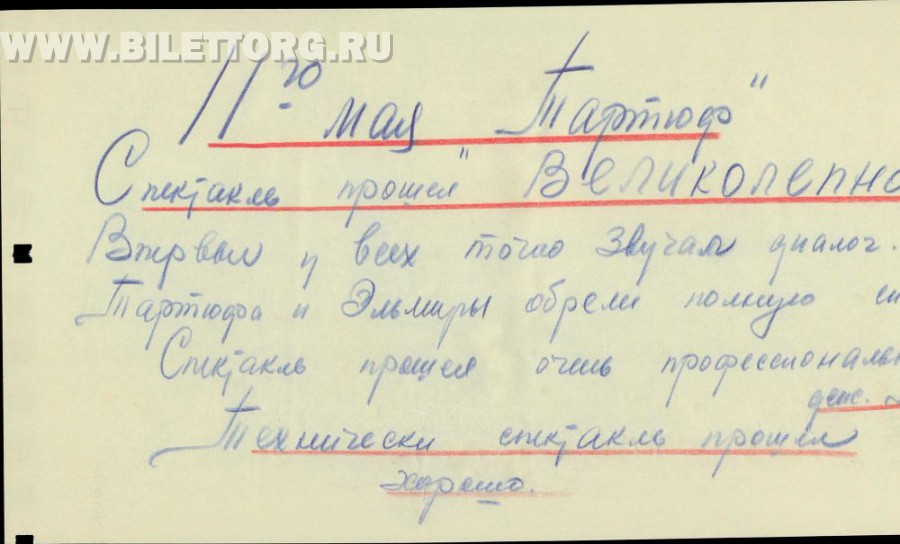 WWW.BILETTORG.RU
11го мая „Тартюф"
Спектакль прошел Великолепно
Впервые у всех точно звучал диалог.
Тартюфа и Эльмиры обрели полную си
Спектакль прошел очень профессиональн
Технически спектакль прошел
хорошо.